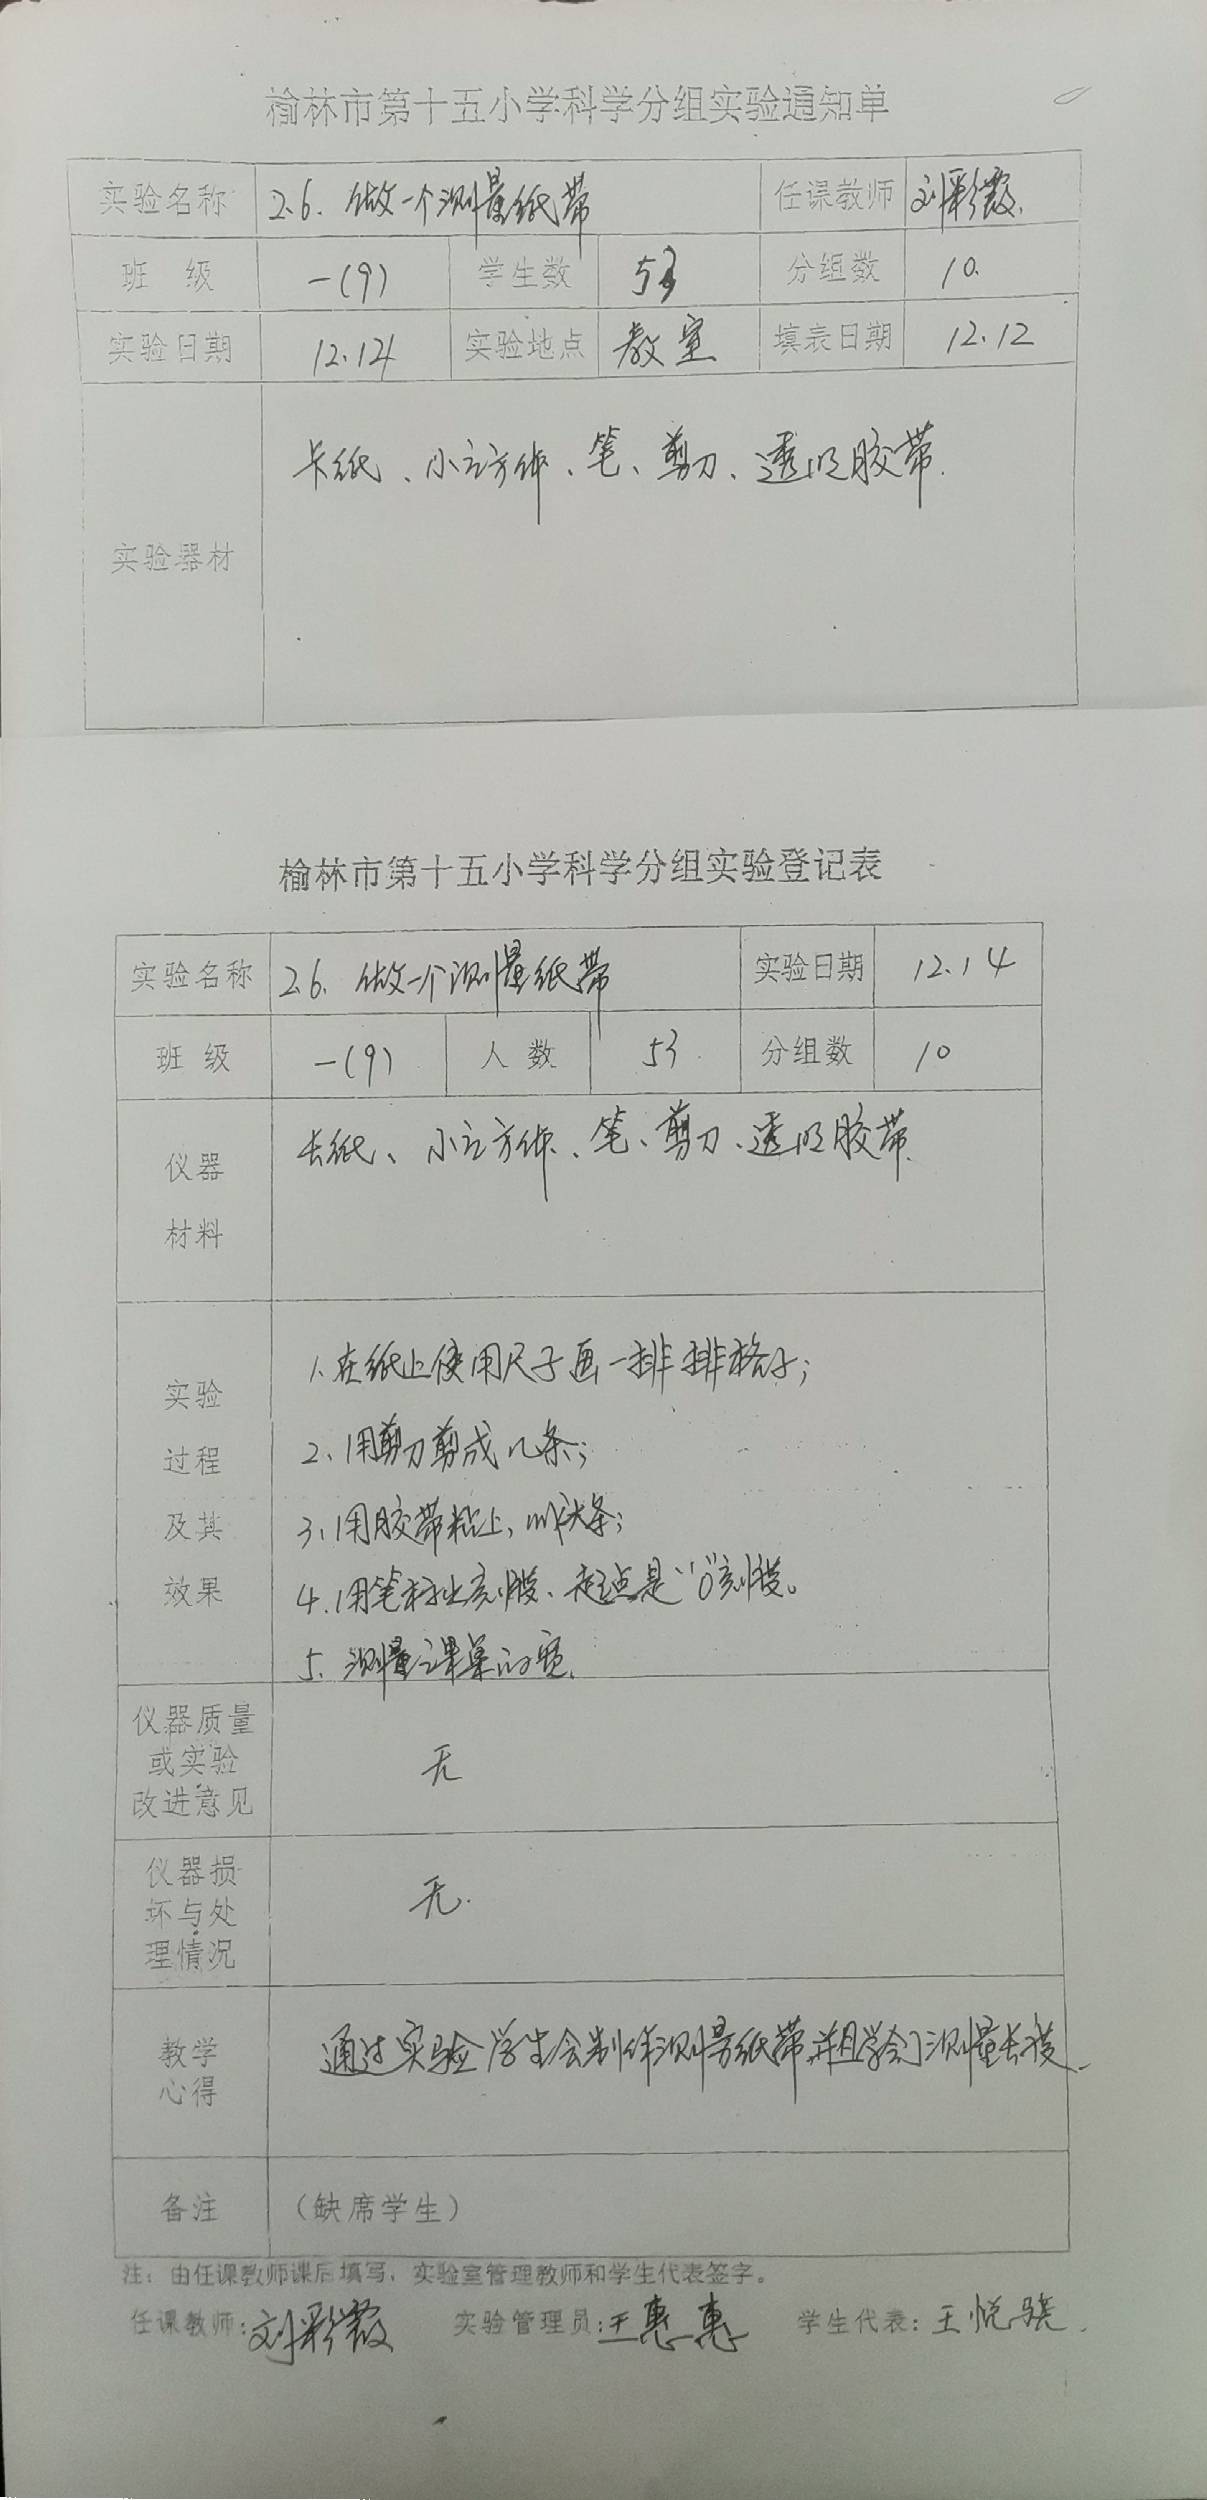 榆林市第十五小学科学分组实验通知单
实验名称 2.6. 做一个测量纸带 任课教师 刘彩薇.
班 级 一(9) 学生数 53 分组数 10.
实验日期 12.14 实验地点 教室 填表日期 12.12
卡纸、小立方体、笔、剪刀、透明胶带.
实验器材
榆林市第十五小学科学分组实验登记表
实验名称 2.6. 做一个测量纸带 实验日期 12.14
班 级 一(9) 人 数 53 分组数 10
卡纸、小立方体、笔、剪刀、透明胶带.
仪器
材料
1.在纸上使用尺子画一排排格子;
实验
2.用剪刀剪成几条;
过程
3.用胶带粘上,
及其
4.用笔标出刻度、起点是“0”刻度。
效果
5.测量课桌的宽.
仪器质量
或实验 无
改进意见
仪器损
坏与处 无.
理情况
教学 通过实验学生会制作测量纸带,并且学会了测量长度.
心得
备注 (缺席学生)
注：由任课教师课后填写，实验室管理教师和学生代表签字。
任课教师:刘彩薇 实验管理员:王惠惠 学生代表:王悦骁.